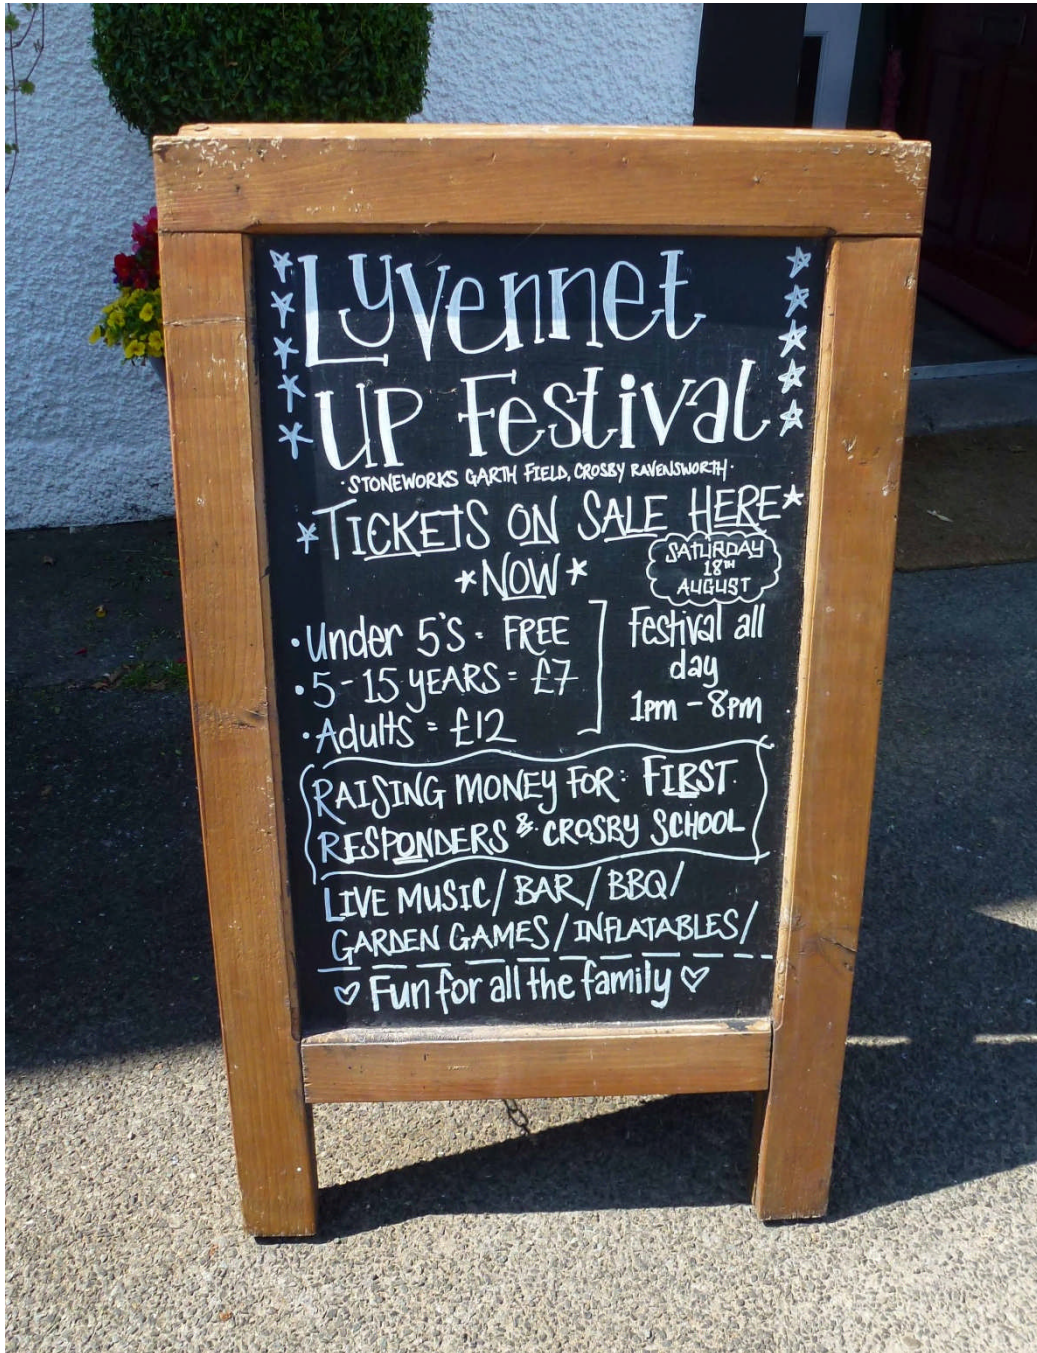 Lyvennet
UP Festival
· STONEWORKS GARTH FIELD, CROSBY RAVENSWORTH ·
TICKETS ON SALE HERE
NOW
SATURDAY
18TH
AUGUST
· Under 5's = FREE
· 5-15 YEARS = £7
· Adults = £12
Festival all
day
1pm - 8pm
RAISING MONEY FOR: FIRST
RESPONDERS & CROSBY SCHOOL
LIVE MUSIC/ BAR/ BBQ/
GARDEN GAMES/ INFLATABLES/
♡ Fun for all the family ♡